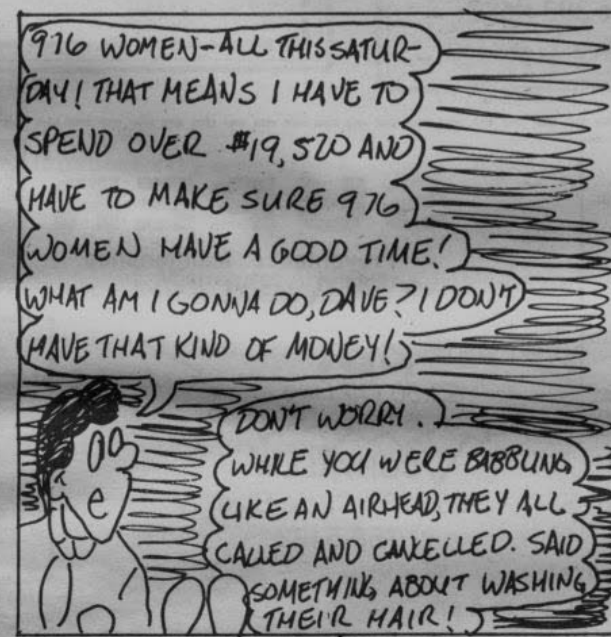 976 WOMEN-ALL THIS SATUR-
DAY! THAT MEANS I HAVE TO
SPEND OVER $19,520 AND
HAVE TO MAKE SURE 976
WOMEN HAVE A GOOD TIME!
WHAT AM I GONNA DO, DAVE? I DON'T
HAVE THAT KIND OF MONEY!
DON'T WORRY.
WHILE YOU WERE BABBLING
LIKE AN AIRHEAD, THEY ALL
CALLED AND CANCELLED. SAID
SOMETHING ABOUT WASHING
THEIR HAIR!